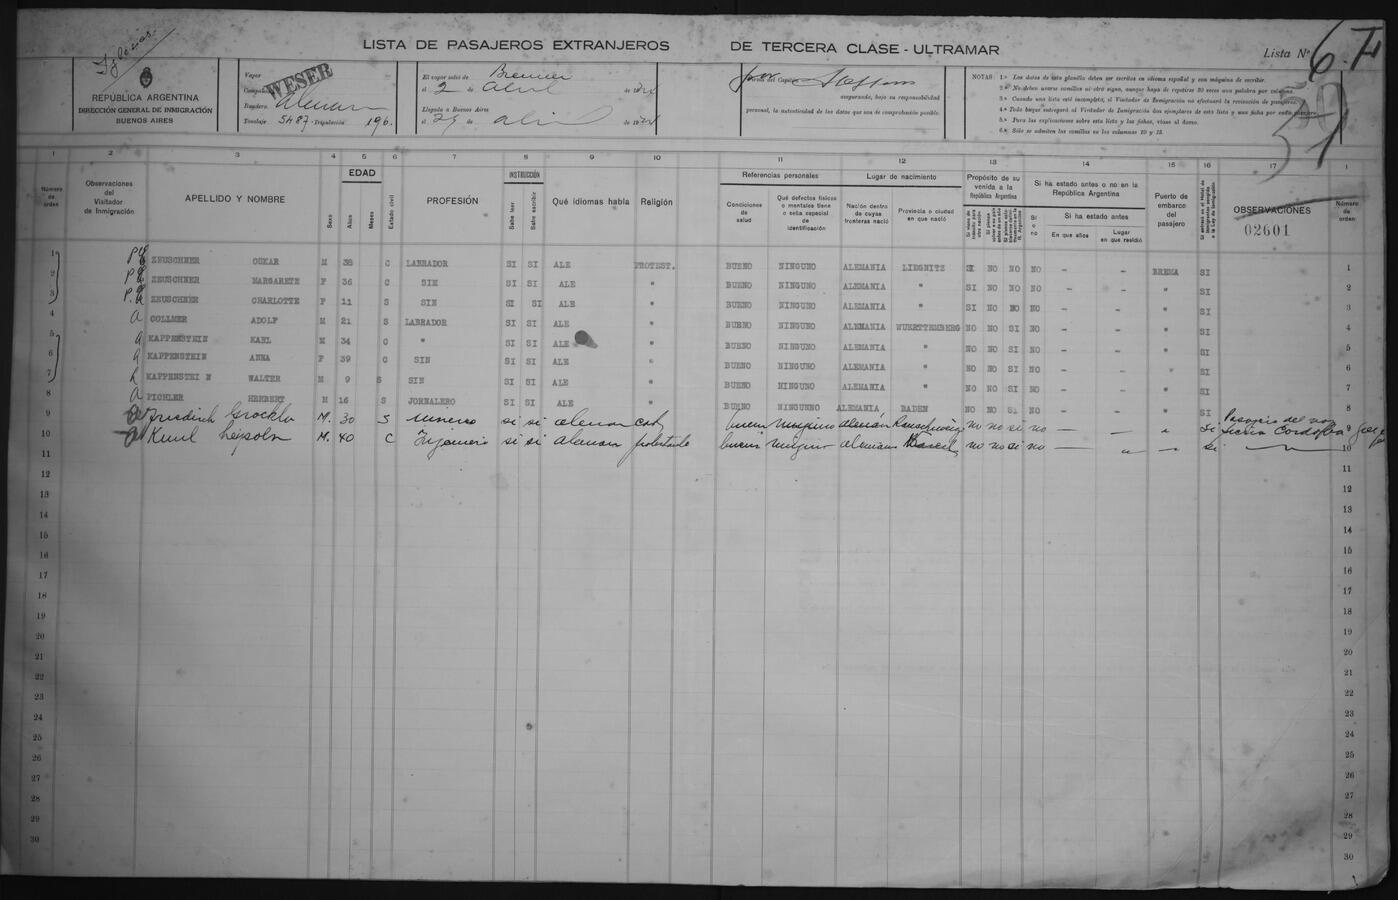 Iglesias
LISTA DE PASAJEROS EXTRANJEROS DE TERCERA CLASE - ULTRAMAR
Lista Nº 6 F
REPÚBLICA ARGENTINA
DIRECCIÓN GENERAL DE INMIGRACIÓN
BUENOS AIRES
Vapor WESER
Bandera Aleman
Tonelaje 5487 - Tripulación 196
El vapor salió de Bremen
el 2 de Abril de 19
Llegado a Buenos Aires
el de Abril de 19
Firma del Capitán
asegurando, bajo su responsabilidad
personal, la autenticidad de los datos que son de comprobación posible.
NOTAS: 1.ª Los datos de esta planilla deben ser escritos en idioma español y con máquina de escribir.
2.ª No deben usarse comillas ni otro signo, aunque haya de repetirse 30 veces una palabra por columna.
3.ª Cuando una lista esté incompleta, el Visitador de Inmigración no efectuará la revisación de pasajeros.
4.ª Todo buque entregará al Visitador de Inmigración dos ejemplares de esta lista y una ficha por cada pasajero.
5.ª Para las explicaciones sobre esta lista y las fichas, véase al dorso.
6.ª Sólo se admiten las comillas en las columnas 10 y 15.
1 2 3 4 5 6 7 8 9 10 11 12 13 14 15 16 17 1
Número de orden
Observaciones del Visitador de Inmigración
APELLIDO Y NOMBRE
Sexo
EDAD
Años
Meses
Estado civil
PROFESIÓN
INSTRUCCIÓN
Sabe leer
Sabe escribir
Qué idiomas habla
Religión
Referencias personales
Condiciones de salud
Qué defectos físicos o mentales tiene o seña especial de identificación
Lugar de nacimiento
Nación dentro de cuyas fronteras nació
Provincia o ciudad en que nació
Propósito de su venida a la República Argentina
Si ha estado antes o no en la República Argentina
Si o no
Si ha estado antes
En que años
Lugar en que residió
Puerto de embarco del pasajero
OBSERVACIONES
Número de orden
02601
1 ZEUSCHNER OSKAR M 38 C LABRADOR SI SI ALE PROTEST. BUENO NINGUNO ALEMANIA LIEGNITZ SI NO NO NO - - BREMA SI 1
2 ZEUSCHNER MARGARETE F 36 C SIN SI SI ALE " BUENO NINGUNO ALEMANIA " SI NO NO NO - - " SI 2
3 ZEUSCHNER CHARLOTTE F 11 S SIN SI SI ALE " BUENO NINGUNO ALEMANIA " SI NO NO NO - - " SI 3
4 COLLMER ADOLF M 21 S LABRADOR SI SI ALE " BUENO NINGUNO ALEMANIA WUERTTEMBERG NO NO SI NO - - " SI 4
5 KAPPENSTEIN KARL M 34 C " SI SI ALE " BUENO NINGUNO ALEMANIA " NO NO SI NO - - " SI 5
6 KAPPENSTEIN ANNA F 39 C SIN SI SI ALE " BUENO NINGUNO ALEMANIA " NO NO SI NO - - " SI 6
7 KAPPENSTEI N WALTER M 9 S SIN SI SI ALE " BUENO NINGUNO ALEMANIA " NO NO SI NO - - " SI 7
8 PICHLER HERBERT M 16 S JORNALERO SI SI ALE " BUENO NINGUENO ALEMANIA BADEN NO NO SI NO - - " SI 8
9 Friedrich M. 30 S Minero si si aleman cat buen ninguno alemán no no si no — — " Si Pasajero del vap 9
Sierra Cordoba
10 M. 40 C Ingeniero si si aleman buen ninguno aleman no no si no — " — si 10
11 11
12 12
13 13
14 14
15 15
16 16
17 17
18 18
19 19
20 20
21 21
22 22
23 23
24 24
25 25
26 26
27 27
28 28
29 29
30 30